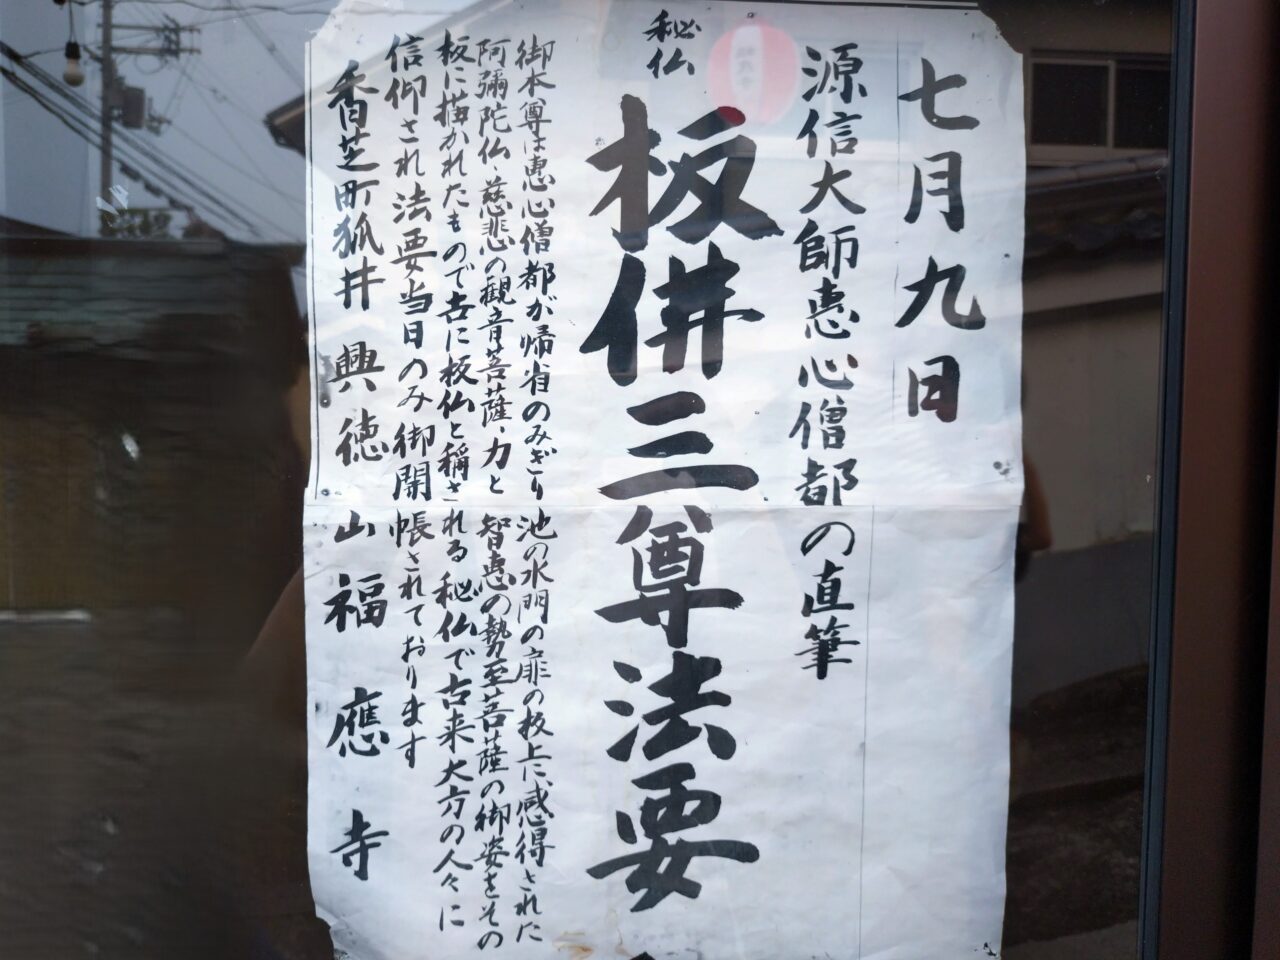 七月九日
源信大師恵心僧都の直筆
秘仏
板併三尊法要
御本尊は恵心僧都が帰省のみぎり池の水門の扉の板上に感得された
阿彌陀仏・慈悲の観音菩薩・力と智恵の勢至菩薩の御姿をその
板に描かれたもので古に板仏と稱される秘仏で古来大方の人々に
信仰され法要当日のみ御開帳されております
香芝町狐井 興徳山福應寺